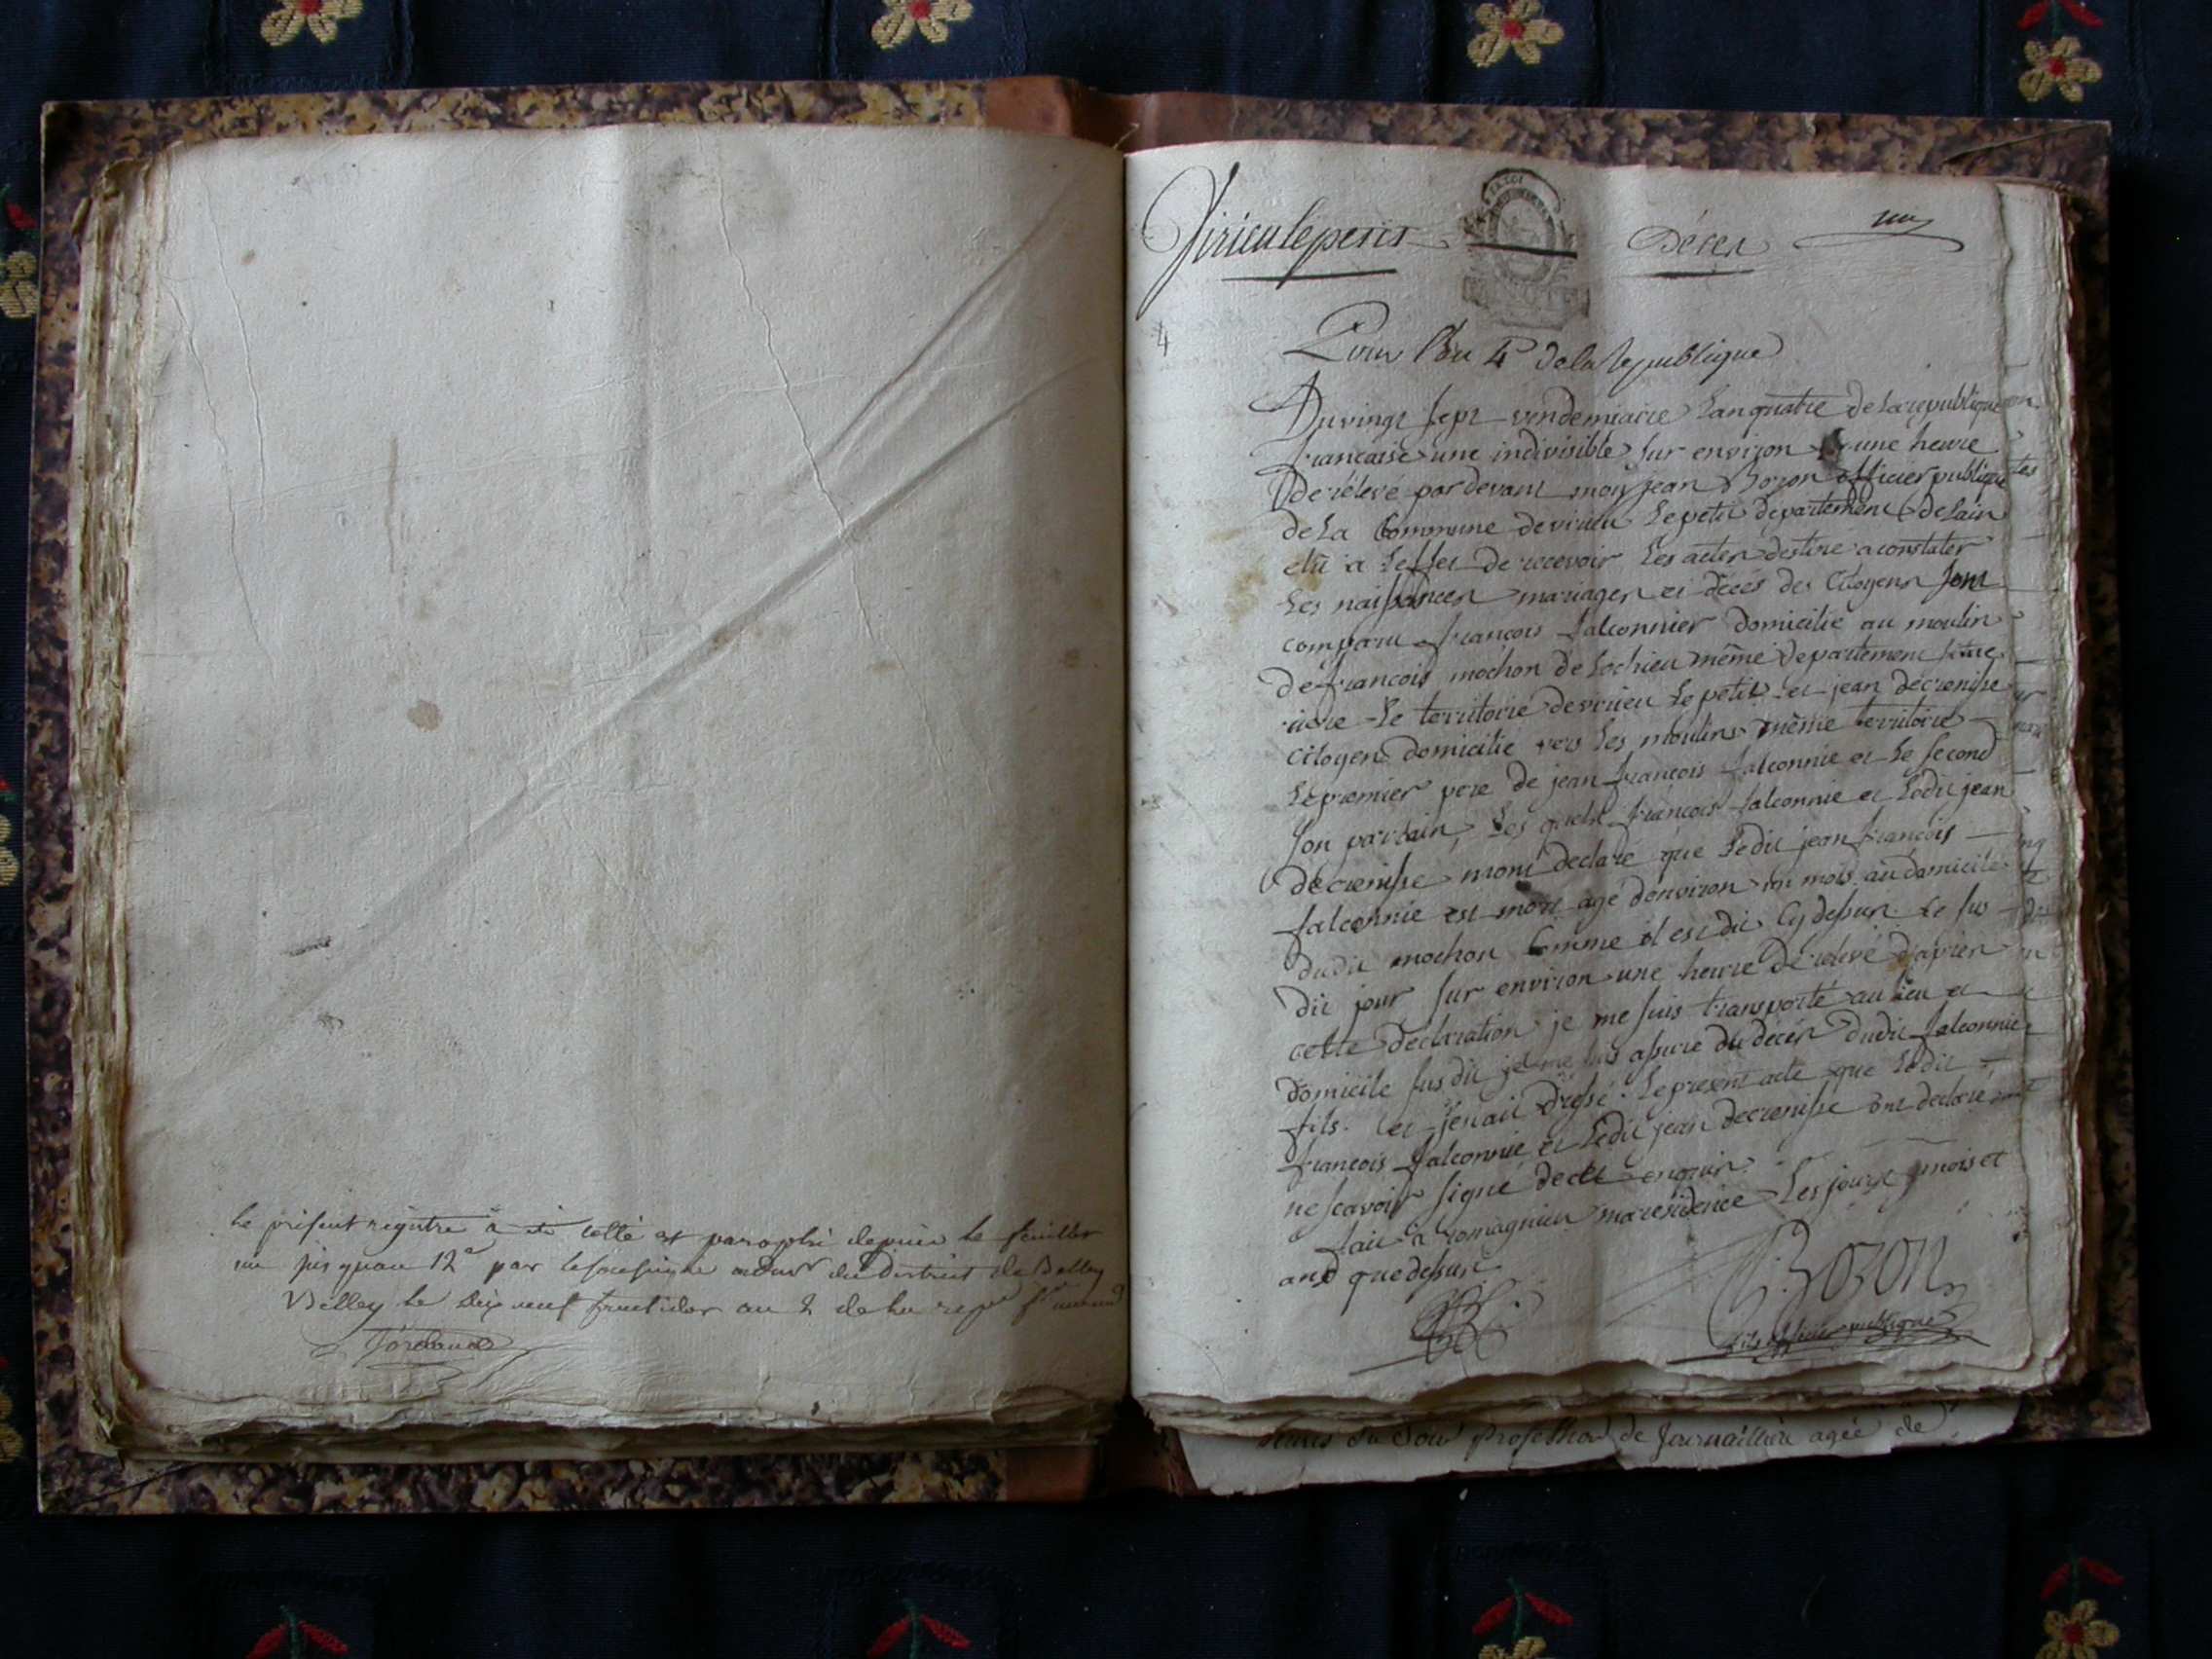 le présent registre a été cotté et paraphé depuis le feuillet
un jusquau 12e par le soussigné du District de Belley
Belley le dix neuf fructidor an 2 de la
Virieu le petit Décès un
4
Pour l'an 4e de la république
Du vingt sept vendemiaire l'an quatre de la republique
francaise une indivisible sur environ une heure
de relevé par devant moy jean Bozon officier publique
de la Commune de virieu le petit departement de lain
elû a leffet de recevoir les actes destine a constater
les naissances mariages et décés des Citoyens sont
comparu françois falconnier domicilié au moulin
de francois mochon de Lochieu même departement
le territoire de virieu le petit et jean decrenisse
citoyen domicilié vers les moulins même territoire
le premier pere de jean françois falconnie et le second
son parrain, les quels françois falconnie et ledit jean
decrenisse mont declaré que ledit jean francois
falconnie est mort agé denviron un mois au domicile
dudit mochon comme il est dit cy dessus. le sus
dit jour sur environ une heure de relevé d'après
cette declaration je me suis transporté au lieu et
domicile sus dit je me suis assuré du décés dudit falconnie
fils. et jen ait dréssé le present acte que ledit
francois falconnie et ledit jean decrenisse ont declaré
ne scavoir signé de ce enquis.
fait a romagnieu ma residence les jours mois et
and que dessus
Bozon
officier publique
heures du soir profession de Journallière agée de